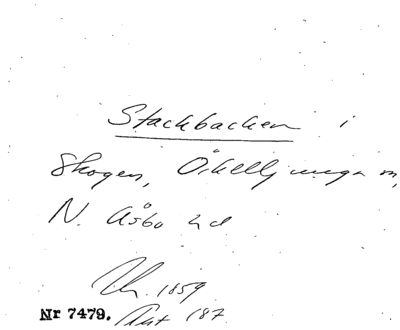 Stackbacken i
Skogen, Örkelljunga sn,
N. Åsbo hd
1859
Nr 7479. 187